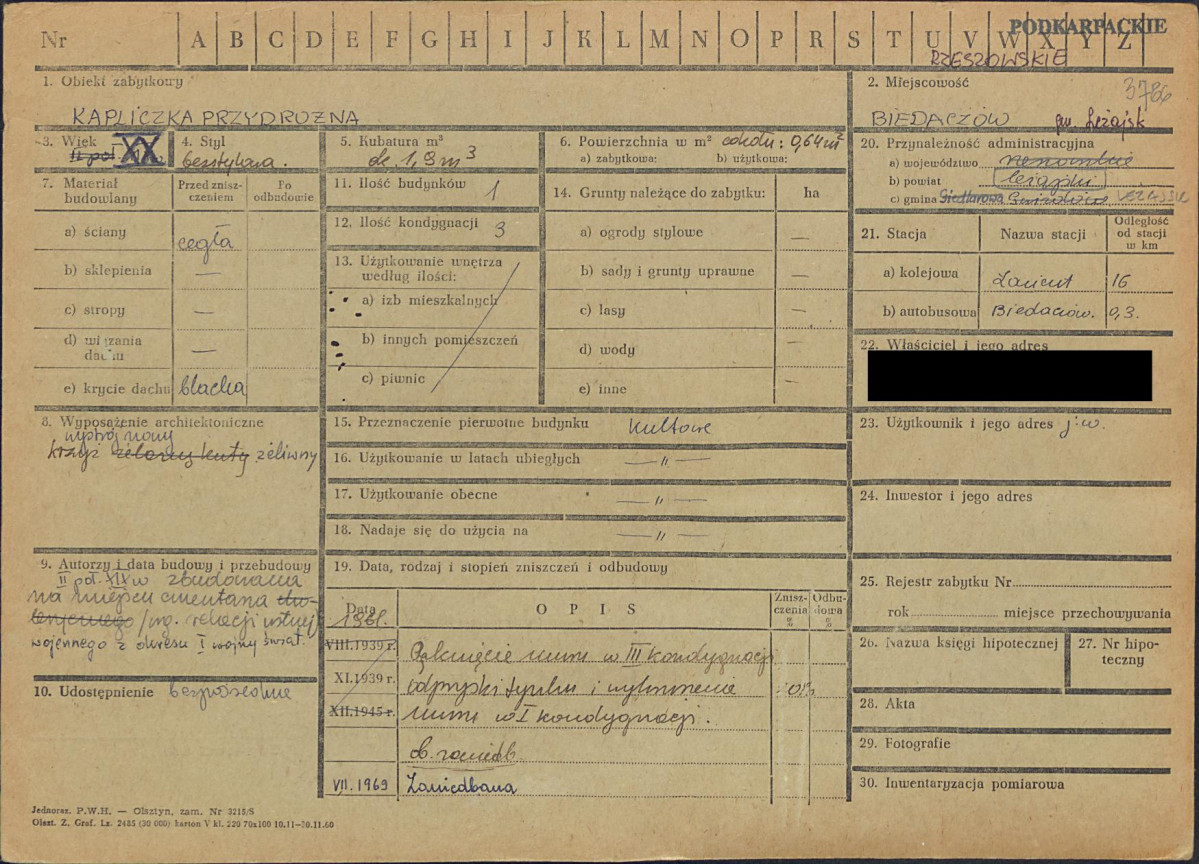 Nr A B C D E F G H I J K L M N O P R S T U V W X Y Z
PODKARPACKIE
RZESZOWSKIE
1. Obiekt zabytkowy
KAPLICZKA PRZYDROŻNA
2. Miejscowość
3786
BIEDACZÓW gm. Leżajsk
3. Wiek
II poł. XX
4. Styl
bezstylowa.
5. Kubatura m³
ok. 1,9 m³
6. Powierzchnia w m² cokołu: 0,64 m²
a) zabytkowa: b) użytkowa:
20. Przynależność administracyjna
a) województwo rzeszowskie
b) powiat leżajski
c) gmina Giedlarowa LEŻAJSK
7. Materiał budowlany
Przed zniszczeniem
Po odbudowie
a) ściany cegła
b) sklepienia —
c) stropy —
d) wiązania dachu —
e) krycie dachu blacha
11. Ilość budynków 1
12. Ilość kondygnacji 3
13. Użytkowanie wnętrza
według ilości:
a) izb mieszkalnych
b) innych pomieszczeń
c) piwnic
14. Grunty należące do zabytku: ha
a) ogrody stylowe —
b) sady i grunty uprawne —
c) lasy —
d) wody —
e) inne —
21. Stacja Nazwa stacji Odległość od stacji w km
a) kolejowa Łańcut 16
b) autobusowa Biedaczów. 0,3.
22. Właściciel i jego adres
8. Wyposażenie architektoniczne
wystrój nowy
krzyż żelazny kuty żeliwny
15. Przeznaczenie pierwotne budynku kultowe
16. Użytkowanie w latach ubiegłych — " —
17. Użytkowanie obecne — " —
18. Nadaje się do użycia na — " —
23. Użytkownik i jego adres j.w.
24. Inwestor i jego adres
9. Autorzy i data budowy i przebudowy
II poł. XIX w zbudowana
na miejscu cmentarza cho-
lerycznego /wg. relacji ustnej
wojennego z okresu I wojny świat.
10. Udostępnienie bezpośrednie
19. Data, rodzaj i stopień zniszczeń i odbudowy
Data OPIS Zniszczenia % Odbudowa %
1961.
VIII.1939 r. Pęknięcie muru w III kondygnacji
XI.1939 r. odpryski tynku i wykruszenie
XII.1945 r. muru w I kondygnacji.
ob. zaniedb.
VII.1969 Zaniedbana
25. Rejestr zabytku Nr
rok miejsce przechowywania
26. Nazwa księgi hipotecznej
27. Nr hipoteczny
28. Akta
29. Fotografie
30. Inwentaryzacja pomiarowa
Jednoraz. P.W.H. — Olsztyn, zam. Nr 3215/S
Olszt. Z. Graf. Lz. 2485 (30 000) karton V kl. 220 70x100 10.11—30.11.60